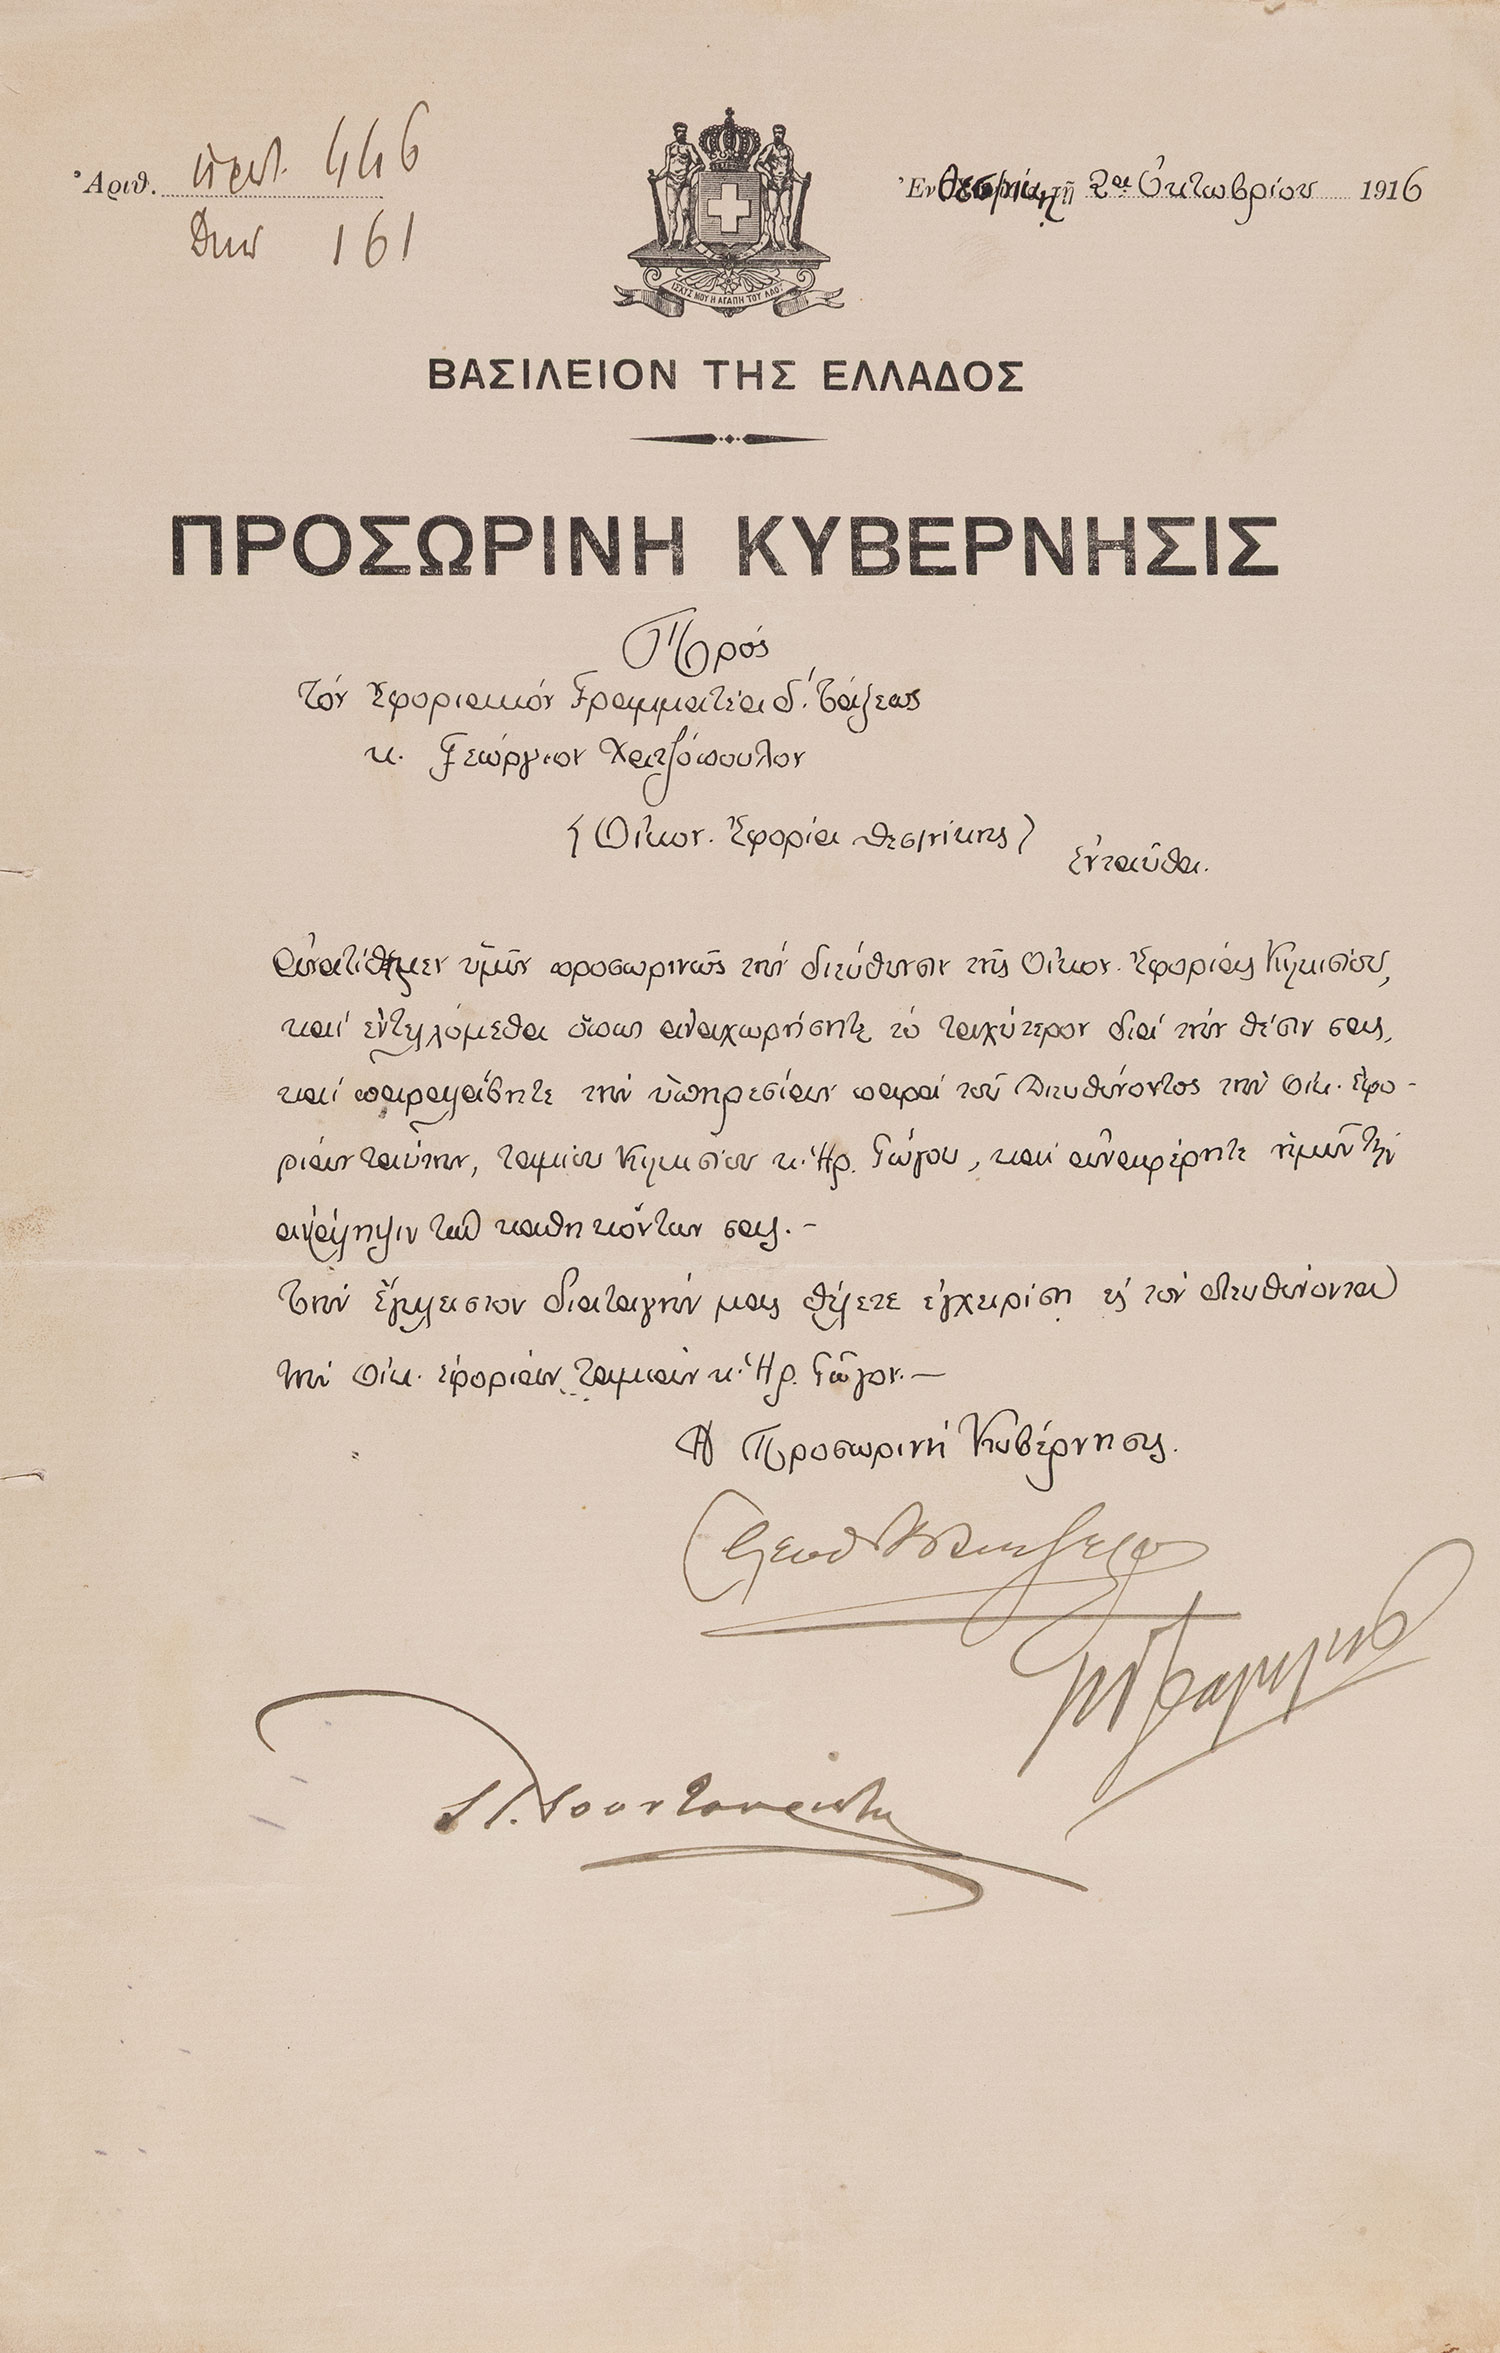 Ἀριθ. πρωτ. 446
Διεκ 161
Ἐν Θεσ/νίκῃ τῇ 2ᾳ Ὀκτωβρίου 1916
ΙΣΧΥΣ ΜΟΥ Η ΑΓΑΠΗ ΤΟΥ ΛΑΟΥ
ΒΑΣΙΛΕΙΟΝ ΤΗΣ ΕΛΛΑΔΟΣ
ΠΡΟΣΩΡΙΝΗ ΚΥΒΕΡΝΗΣΙΣ
Πρός
τόν Ἐφοριακόν Γραμματέα δ΄. τάξεως
κ. Γεώργιον Χατζόπουλον
(Οἰκον. Ἐφορία Θεσ/νίκης)
Ἐνταῦθα.
Ἀνατίθεμεν ὑμῖν προσωρινῶς τήν διεύθυνσιν τῆς Οἰκον. Ἐφορίας Κιλκισίου,
καί ἐντελλόμεθα ὅπως ἀναχωρήσητε τό ταχύτερον διά τήν θέσιν σας,
καί παραλάβητε τήν ὑπηρεσίαν παρά τοῦ Διευθύνοντος τήν Οἰκ. Ἐφο-
ρίαν ταύτην, ταμίου Κιλκισίου κ. Ἡρ. Γώγου, καί ἀναφέρητε ἡμῖν τήν
ἀνάληψιν τῶν καθηκόντων σας.-
Τήν ἔγκλειστον διαταγήν μας θέλετε ἐγχειρίσῃ εἰς τόν διευθύνοντα
τήν Οἰκ. ἐφορίαν, ταμίαν κ. Ἡρ. Γῶγον.-
Ἡ Προσωρινή Κυβέρνησις.
Ἐλευθ Βενιζέλος
Π. Κουντουριώτης